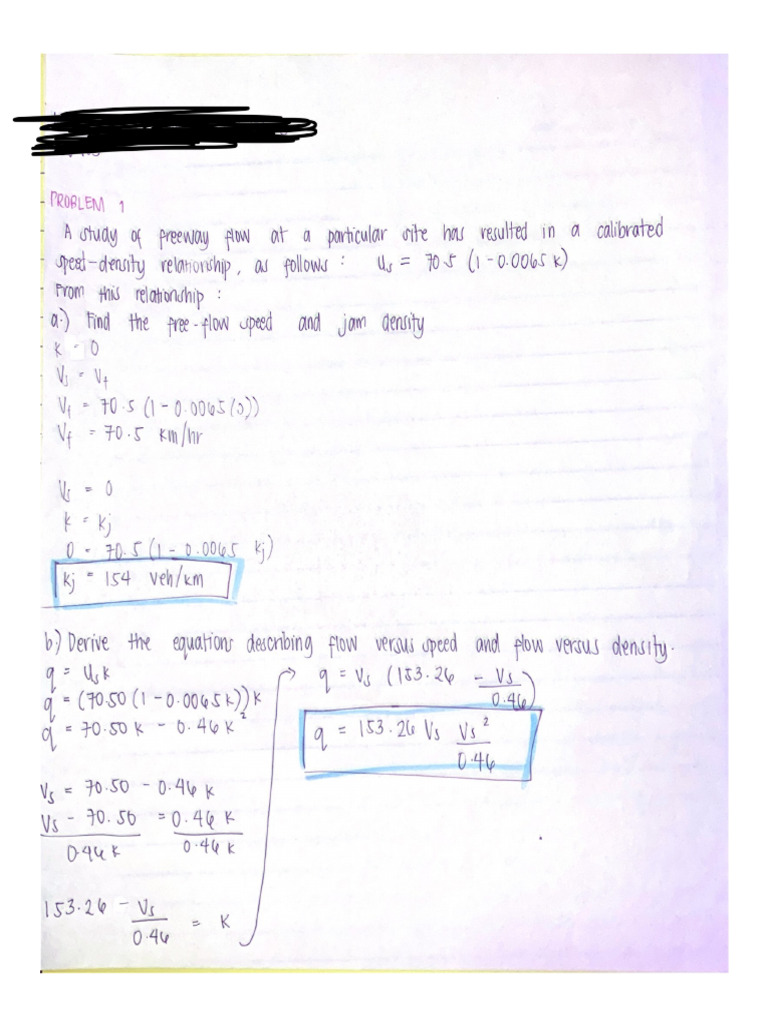 PROBLEM 1
A study of freeway flow at a particular site has resulted in a calibrated
speed-density relationship, as follows : Us = 70.5 (1-0.0065 k)
From this relationship :
a.) Find the free-flow speed and jam density
k = 0
Vs = Vf
Vf = 70.5 (1-0.0065(0))
Vf = 70.5 km/hr
Vs = 0
k = kj
0 = 70.5 (1-0.0065 kj)
kj = 154 veh/km
b.) Derive the equations describing flow versus speed and flow versus density.
q = Usk
q = (70.50 (1-0.0065k))k
q = 70.50 k - 0.46 k²
Vs = 70.50 - 0.46 k
Vs - 70.50 = 0.46 k
0.46 k 0.46 k
153.26 - Vs = k
0.46
q = Vs (153.26 - Vs)
0.46
q = 153.26 Vs Vs²
0.46